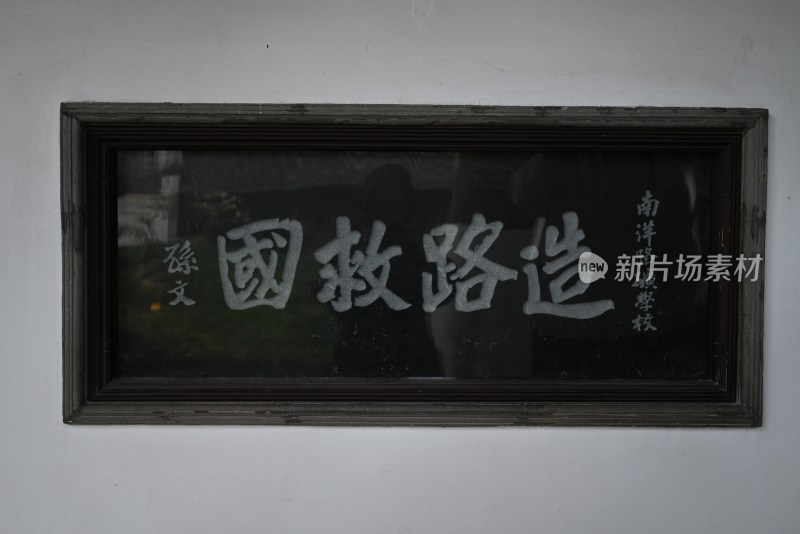 南洋學校
造路救國
孫文
new 新片场素材